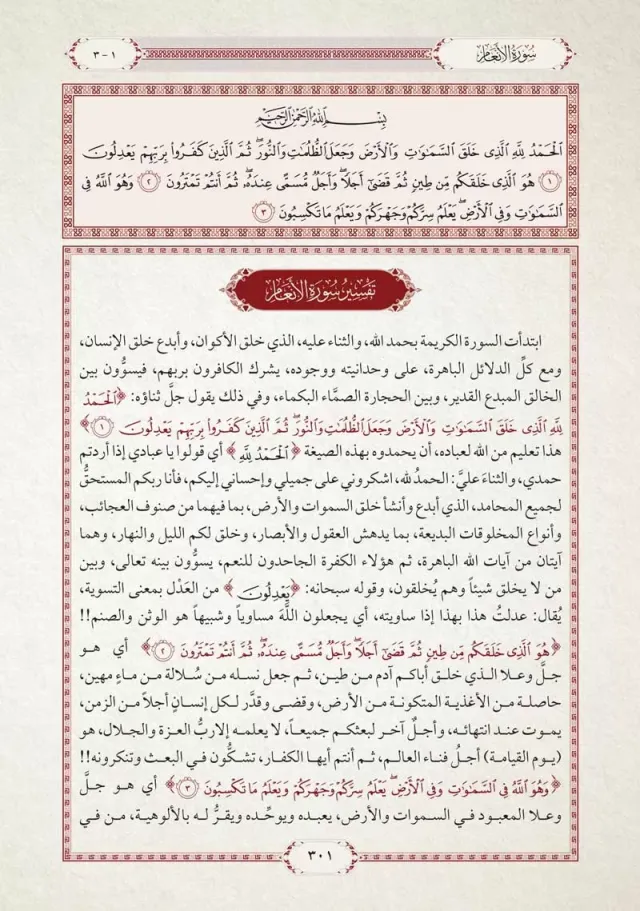 سُورَةُ الأَنْعَام
١ - ٣
بِسْمِ اللَّهِ الرَّحْمَنِ الرَّحِيمِ
الْحَمْدُ لِلَّهِ الَّذِي خَلَقَ السَّمَوَاتِ وَالْأَرْضَ وَجَعَلَ الظُّلُمَاتِ وَالنُّورَ ثُمَّ الَّذِينَ كَفَرُوا بِرَبِّهِمْ يَعْدِلُونَ
﴿١﴾ هُوَ الَّذِي خَلَقَكُم مِّن طِينٍ ثُمَّ قَضَىٰ أَجَلًا وَأَجَلٌ مُّسَمًّى عِندَهُ ثُمَّ أَنتُمْ تَمْتَرُونَ ﴿٢﴾ وَهُوَ اللَّهُ فِي
السَّمَوَاتِ وَفِي الْأَرْضِ يَعْلَمُ سِرَّكُمْ وَجَهْرَكُمْ وَيَعْلَمُ مَا تَكْسِبُونَ ﴿٣﴾
تَفْسِيرُ سُورَةِ الأَنْعَام
ابتدأت السورة الكريمة بحمد الله، والثناء عليه، الذي خلق الأكوان، وأبدع خلق الإنسان،
ومع كلِّ الدلائل الباهرة، على وحدانيته ووجوده، يشرك الكافرون بربهم، فيسوُّون بين
الخالق المبدع القدير، وبين الحجارة الصمَّاء البكماء، وفي ذلك يقول جلَّ ثناؤه: ﴿الْحَمْدُ
لِلَّهِ الَّذِي خَلَقَ السَّمَوَاتِ وَالْأَرْضَ وَجَعَلَ الظُّلُمَاتِ وَالنُّورَ ثُمَّ الَّذِينَ كَفَرُوا بِرَبِّهِمْ يَعْدِلُونَ ﴿١﴾﴾
هذا تعليم من الله لعباده، أن يحمدوه بهذه الصيغة ﴿الْحَمْدُ لِلَّهِ﴾ أي قولوا يا عبادي إذا أردتم
حمدي، والثناءَ عليَّ: الحمدُ لله، اشكروني على جميلي وإحساني إليكم، فأنا ربكم المستحقُّ
لجميع المحامد، الذي أبدع وأنشأ خلق السموات والأرض، بما فيهما من صنوف العجائب،
وأنواع المخلوقات البديعة، بما يدهش العقول والأبصار، وخلق لكم الليل والنهار، وهما
آيتان من آيات الله الباهرة، ثم هؤلاء الكفرة الجاحدون للنعم، يسوُّون بينه تعالى، وبين
من لا يخلق شيئاً وهم يُخلقون، وقوله سبحانه: ﴿يَعْدِلُونَ﴾ من العَدْل بمعنى التسوية،
يُقال: عدلتُ هذا بهذا إذا ساويته، أي يجعلون اللَّهَ مساوياً وشبيهاً هو الوثن والصنم!!
﴿هُوَ الَّذِي خَلَقَكُم مِّن طِينٍ ثُمَّ قَضَىٰ أَجَلًا وَأَجَلٌ مُّسَمًّى عِندَهُ ثُمَّ أَنتُمْ تَمْتَرُونَ ﴿٢﴾﴾ أي هو
جلَّ وعلا الذي خلق أباكم آدم من طين، ثم جعل نسله من سُلالة من ماءٍ مهين،
حاصلة من الأغذية المتكونة من الأرض، وقضى وقدَّر لكل إنسانٍ أجلاً من الزمن،
يموت عند انتهائه، وأجلٌ آخر لبعثكم جميعاً، لا يعلمه إلا ربُّ العزة والجلال، هو
(يوم القيامة) أجلُ فناء العالم، ثم أنتم أيها الكفار، تشكُّون في البعث وتنكرونه!!
﴿وَهُوَ اللَّهُ فِي السَّمَوَاتِ وَفِي الْأَرْضِ يَعْلَمُ سِرَّكُمْ وَجَهْرَكُمْ وَيَعْلَمُ مَا تَكْسِبُونَ ﴿٣﴾﴾ أي هو جلَّ
وعلا المعبود في السموات والأرض، يعبده ويوحِّده ويقرُّ له بالألوهية، من في
٣٠١